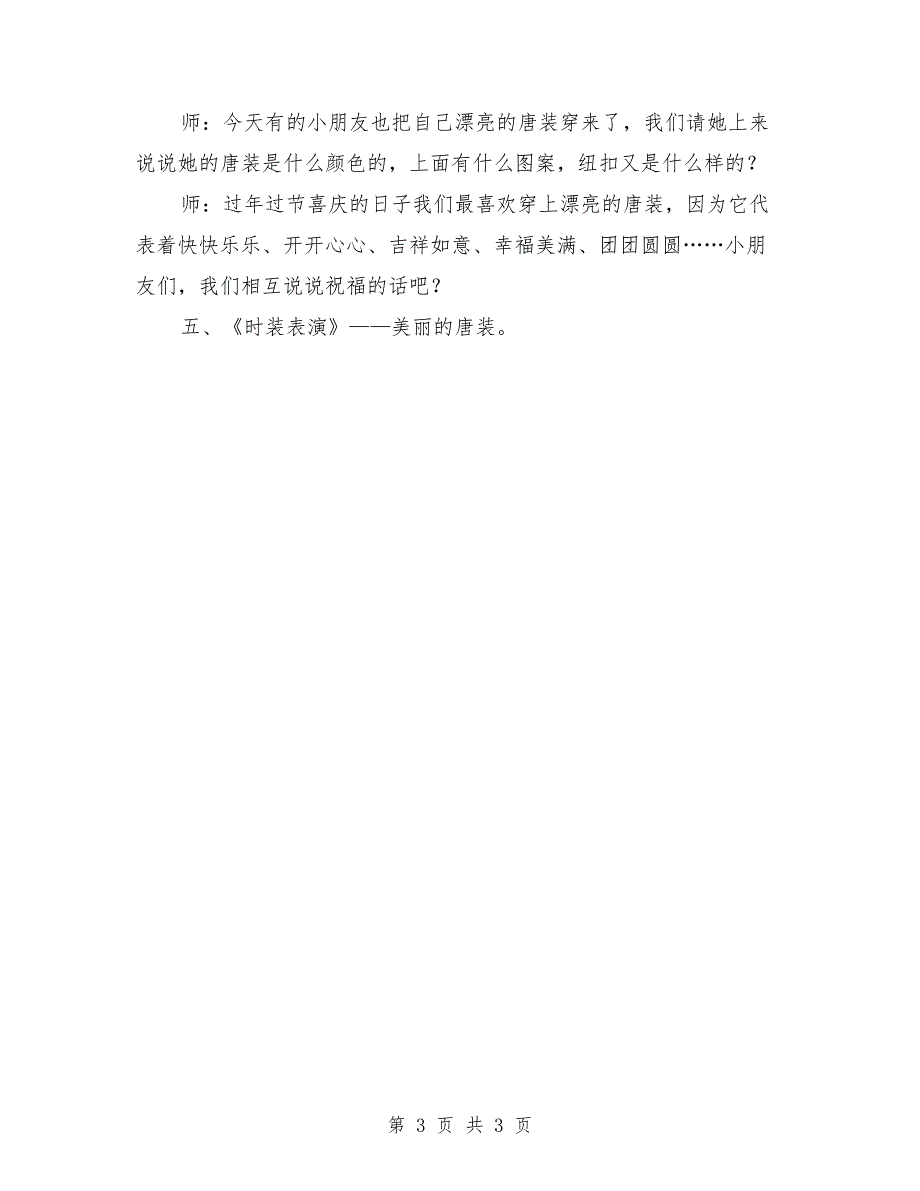 师：今天有的小朋友也把自己漂亮的唐装穿来了，我们请她上来
说说她的唐装是什么颜色的，上面有什么图案，纽扣又是什么样的？
师：过年过节喜庆的日子我们最喜欢穿上漂亮的唐装，因为它代
表着快快乐乐、开开心心、吉祥如意、幸福美满、团团圆圆……小朋
友们，我们相互说说祝福的话吧？
五、《时装表演》——美丽的唐装。
第 3 页 共 3 页